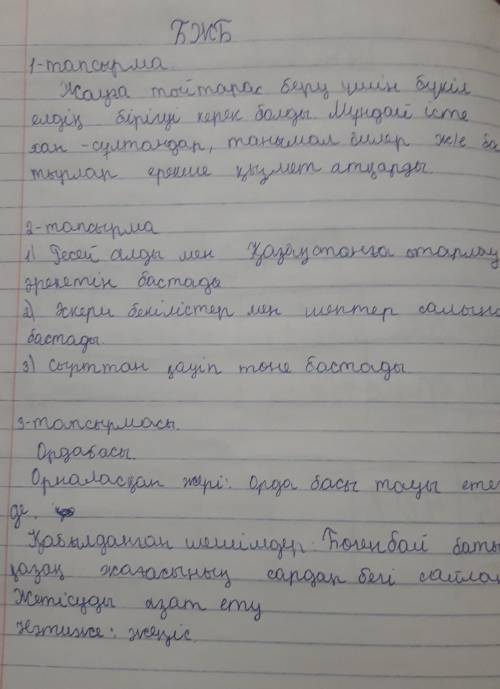 БЖБ
1-тапсырма.
Жауға тойтарас беру үшін бүкіл
елдің бірігуі керек болды. Мұндай істе
хан-сұлтандар, танымал билер ж/е ба
тырлар ерекше қызмет атқарды.
2-тапсырма
1) Ресей алды мен Қазақстанға отарлау
әрекетін бастады
2) Әскери бекілістер мен шептер салына
бастады.
3) Сырттан қауіп төне бастады.
3-тапсырмасы.
Ордабасы.
Орналасқан жері: Орда басы тауы ете
де.
Қабылданған шешімдер: Бөгенбай баты
қазақ жасағының сардар бегі сайлан
Жетісуды азат ету
Нәтиже: жеңіс.